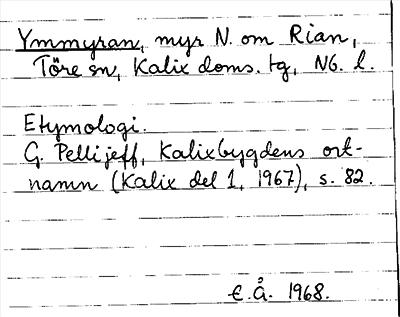 Ymmyran, myr N. om Rian,
Töre sn, Kalix doms. tg, Nb. l.
Etymologi.
G. Pellijeff, Kalixbygdens ort-
namn (Kalix del 1, 1967), s. 82.
E.Å. 1968.